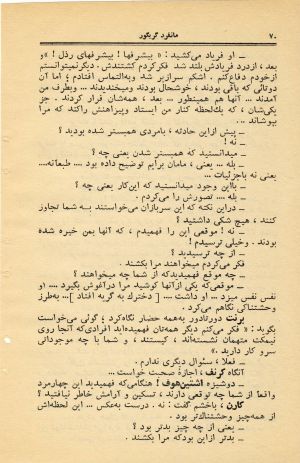 ۷۰ مانفرد گریگور
ـ او فریاد می‌کشید : « بیشرفها ! بیشرفهای رذل ! » و
بعد ، ازدرد فریادش بلند شد . فکرکردم کشتندش . دیگرنمیتوانستم
ازخودم دفاع‌کنم . اشکم سرازیر شد وبه‌التماس افتادم ؛ اما آن
دوتائی که باقی بودند ، خوشحال بودند ومیخندیدند ... وبطرف من
آمدند . آنها هم همینطور ... بعد ، همه‌شان فرار کردند . جز
یکیشان ، که یک‌لحظه کنار من ایستاد وپیراهنش راکند که مرا
بپوشاند ...
ـ پیش ازاین حادثه ، بامردی همبستر شده بودید ؟
ـ نه !
ـ میدانستید که همبستر شدن یعنی چه ؟
ـ بله ... یعنی ، مامان برایم توضیح داده بود .... طبعانه....
یعنی نه باجزئیات ...
ـ بااین وجود میدانستید که این‌کار یعنی چه ؟
ـ بله .... تصورش را می‌کردم .
ـ دراین نکته که این سربازان می‌خواستند بـه شما تجاوز
کنند ، هیچ شکی داشتید ؟
ـ نه ! موقعی این را فهمیدم ، که آنها بمن خیره شده
بودند . وخیلی ترسیدم !
ـ از چه ترسیدید ؟
ـ فکر می‌کردم میخواهند مرا بکشند .
ـ چه موقع فهمیدیدکه از شما چه میخواهند ؟
ـ موقعی‌که یکی ازآنها کوشید مرا درآغوش بگیرد .... او
نفس نفس میزد ... او داشت .... [ دخترك به گریه افتاد ]...به‌طرز
وحشتناکی نگاهم می‌کرد .
برنت دورتادور به‌همه حضار نگاه‌کرد ، گوئی می‌خواست
بگوید : « فکر می‌کنم دیگر همه‌تان فهمیده‌اید افرادی‌که آنجا روی
نیمکت متهمان نشسته‌اند ، کیستند ، و شما با چه موجوداتی
سرو کار دارید . »
ـ فعلا ، سئوال دیگری ندارم .
آنگاه کرنف ، اجازهٔ صحبت خواست ...
ـ دوشیزه اشتین‌هوف ! هنگامی‌که فهمیدید این چهارمرد
واقعا از شما چه توقعی دارند ، تسکین و آرامش خاطر نیافتید ؟
کارن ، باخشم گفت : نه . درست به‌عکس ... این لحظه‌اش
از همه‌چیز وحشتناك‌تر بود .
ـ یعنی از چه چیز بدتر بود ؟
ـ بدتر ازاین بودکه مرا بکشند .